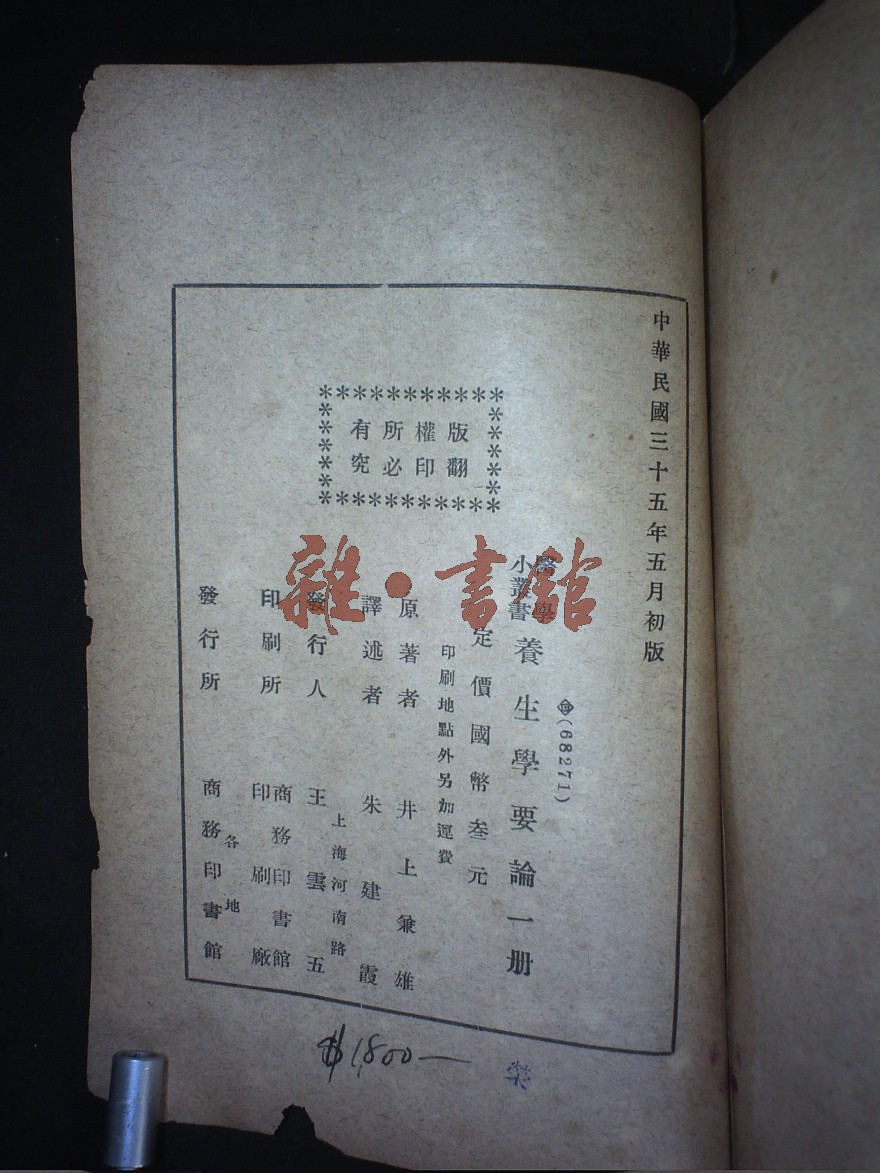 中華民國三十五年五月初版
(68271)
醫學
小叢書
養生學要論一册
定價國幣叁元
印刷地點外另加運費
原著者 井上兼雄
譯述者 朱建霞
上海河南路
發行人 王雲五
印刷所 商務印書館
印刷廠
各地
發行所 商務印書館
版權所有
翻印必究
雜·書館
$1,800—